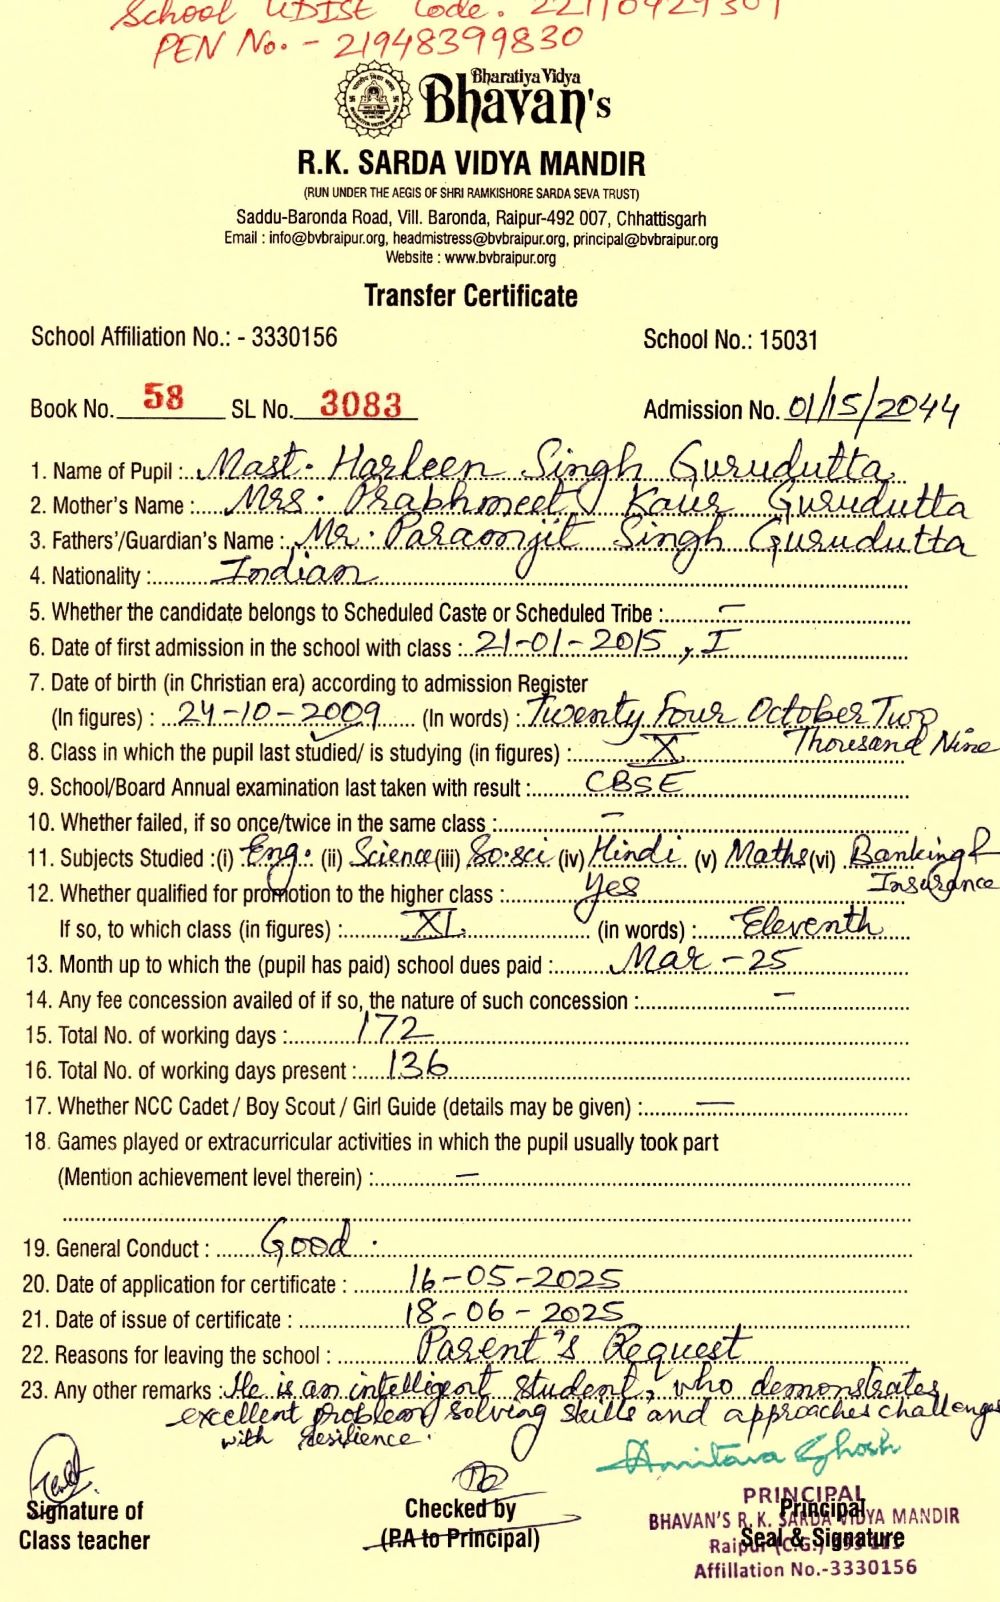 School UDISE Code. 22110929301
PEN No. - 21948399830
Bharatiya Vidya
Bhavan's
R.K. SARDA VIDYA MANDIR
(RUN UNDER THE AEGIS OF SHRI RAMKISHORE SARDA SEVA TRUST)
Saddu-Baronda Road, Vill. Baronda, Raipur-492 007, Chhattisgarh
Email : info@bvbraipur.org, headmistress@bvbraipur.org, principal@bvbraipur.org
Website : www.bvbraipur.org
Transfer Certificate
School Affiliation No.: - 3330156 School No.: 15031
Book No. 58 SL No. 3083 Admission No. 01/15/2044
1. Name of Pupil : Mast. Harleen Singh Gurudutta
2. Mother's Name : Mrs. Prabhmeet Kaur Gurudutta
3. Fathers'/Guardian's Name : Mr. Paramjit Singh Gurudutta
4. Nationality : Indian
5. Whether the candidate belongs to Scheduled Caste or Scheduled Tribe : -
6. Date of first admission in the school with class : 21-01-2015, I
7. Date of birth (in Christian era) according to admission Register
(In figures) : 24-10-2009 (In words) : Twenty Four October Two
Thousand Nine
8. Class in which the pupil last studied/ is studying (in figures) : X
9. School/Board Annual examination last taken with result : CBSE
10. Whether failed, if so once/twice in the same class : -
11. Subjects Studied :(i) Eng. (ii) Science (iii) So.sci (iv) Hindi (v) Maths (vi) Banking &
Insurance
12. Whether qualified for promotion to the higher class : yes
If so, to which class (in figures) : XI (in words) : Eleventh
13. Month up to which the (pupil has paid) school dues paid : Mar - 25
14. Any fee concession availed of if so, the nature of such concession : -
15. Total No. of working days : 172
16. Total No. of working days present : 136
17. Whether NCC Cadet / Boy Scout / Girl Guide (details may be given) : -
18. Games played or extracurricular activities in which the pupil usually took part
(Mention achievement level therein) : -
19. General Conduct : Good.
20. Date of application for certificate : 16-05-2025
21. Date of issue of certificate : 18-06-2025
22. Reasons for leaving the school : Parent's Request
23. Any other remarks : He is an intelligent student, who demonstrates
excellent problem solving skills and approaches challenges
with resilience.
Amitava Ghosh
Signature of
Class teacher
Checked by
(P.A to Principal)
PRINCIPAL
Principal
BHAVAN'S R. K. SARDA VIDYA MANDIR
Seal & Signature
Raipur (C.G.)
Affillation No.-3330156